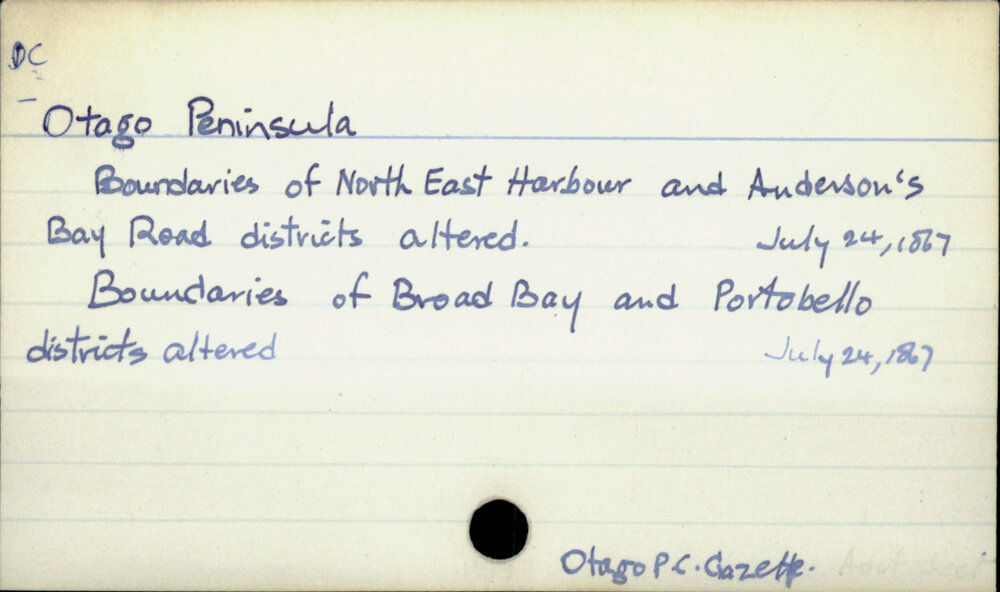 DC
Otago Peninsula
Boundaries of North East Harbour and Anderson's
Bay Road districts altered. July 24, 1867
Boundaries of Broad Bay and Portobello
districts altered July 24, 1867
Otago P.C. Gazette.